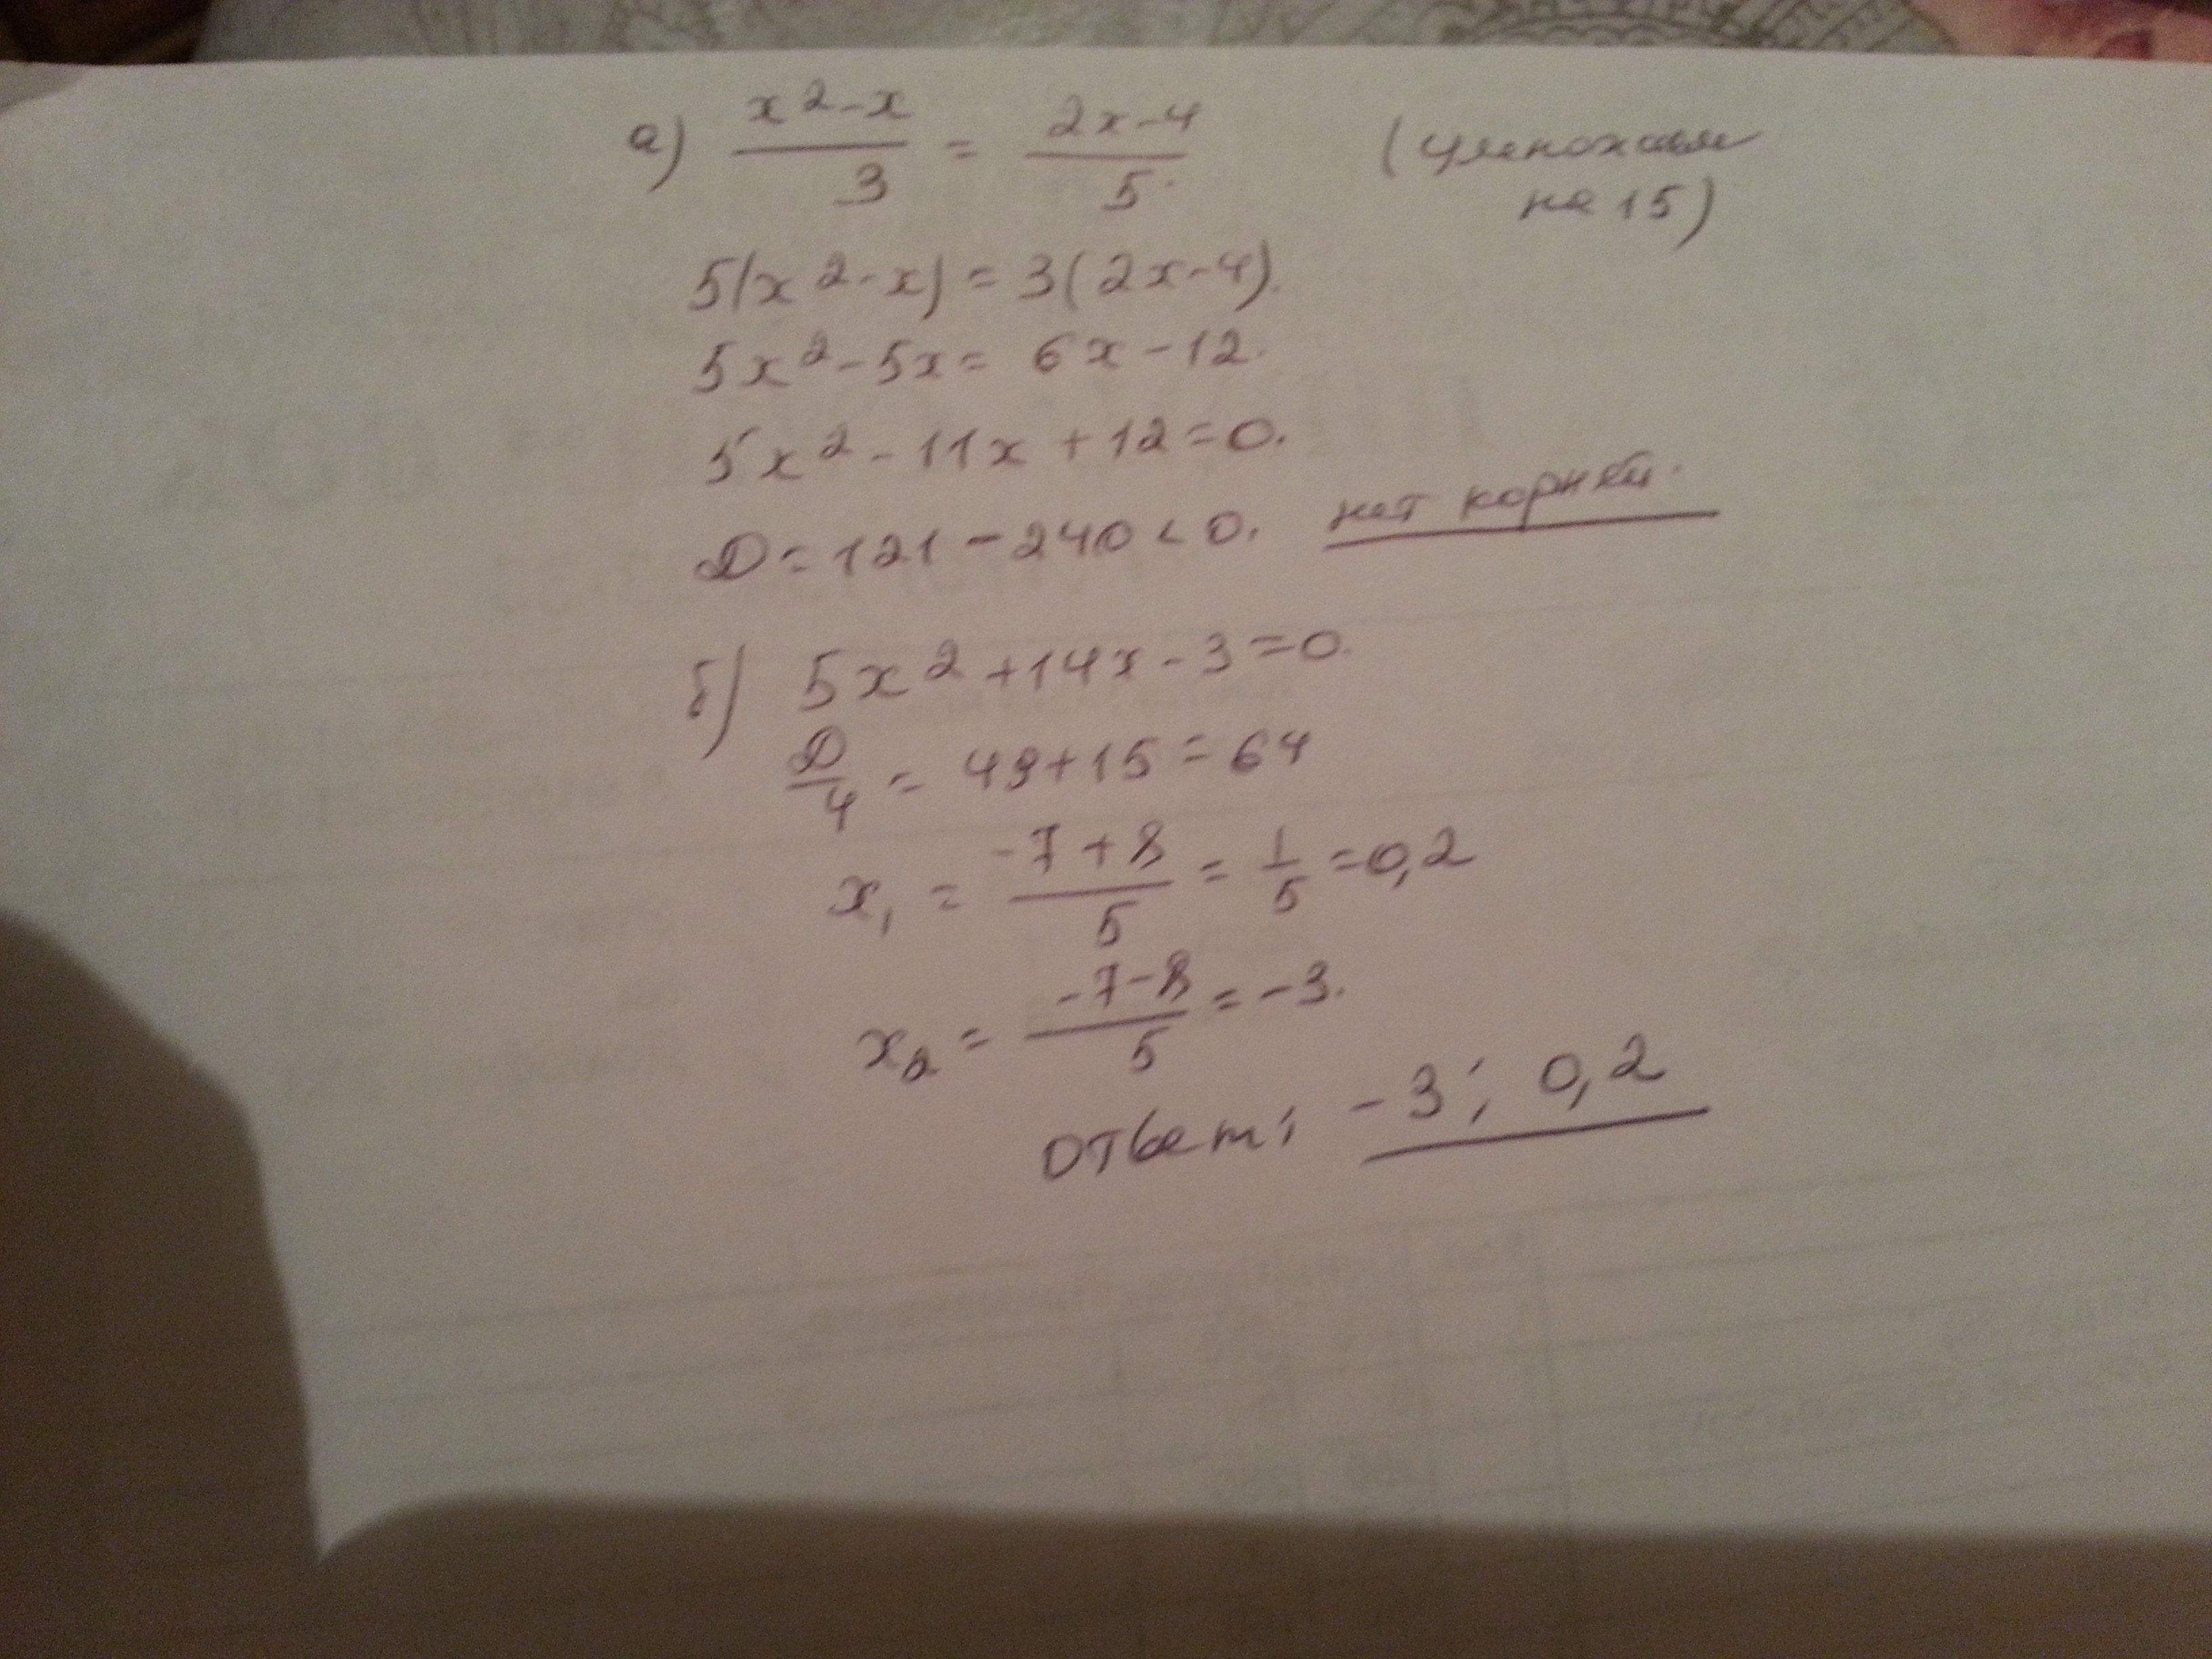 а) (x²-x)/3 = (2x-4)/5 (умножим
на 15)
5(x²-x) = 3(2x-4).
5x²-5x = 6x-12.
5x²-11x+12=0.
D=121-240<0. нет корней.
б) 5x²+14x-3=0.
D/4 = 49+15=64
x₁ = (-7+8)/5 = 1/5 = 0,2
x₂ = (-7-8)/5 = -3.
Ответ: -3; 0,2